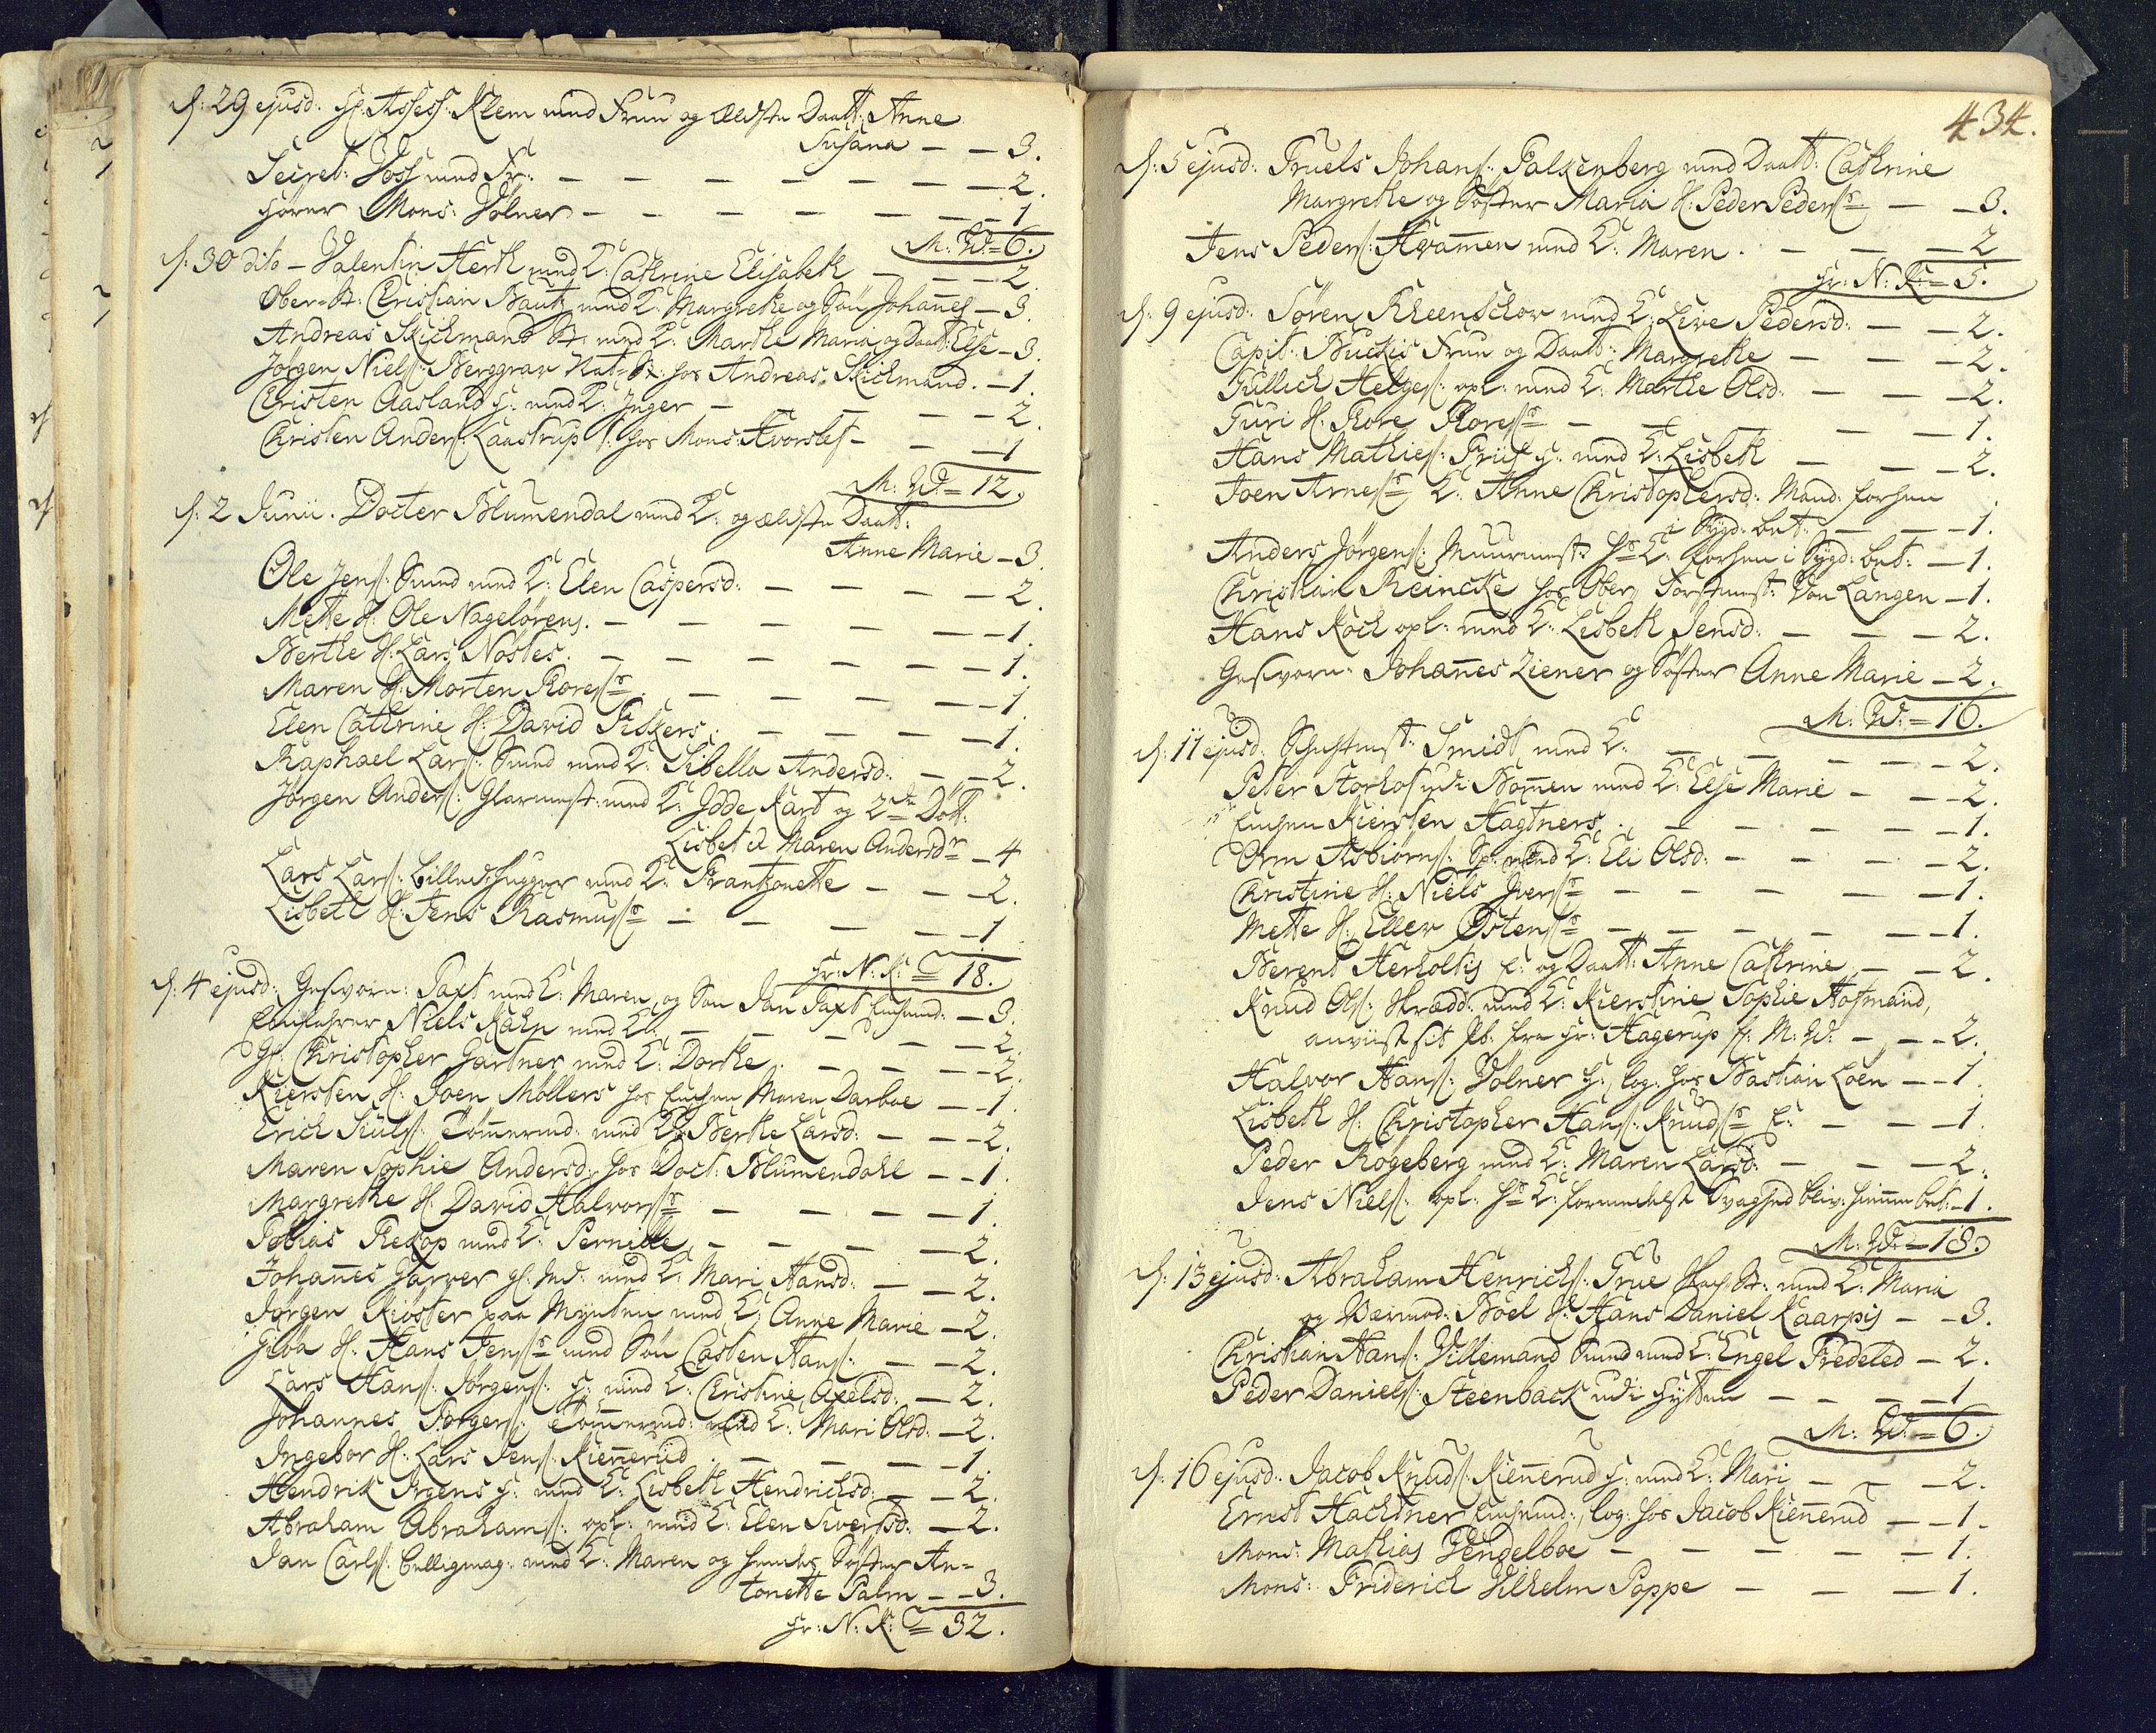 d: 29 ejusd. H: Assess: Klem med Frue og Eldste Daatt: Anne
Susana — — 3.
Secret: Voss med Fr: — — — — — — 2.
Hören Mons: Völner — — — — — — 1
M: W: = 6.
d: 30 dito — Valentin Herth med K: Cathrine Elisabeth — — 2.
Ober-St: Christian Bautz med K: Margrethe og Sön Johanes — 3.
Andreas Skickmand St: med K: Marthe Maria og Daat: Else — 3.
Jörgen Niels: Berggrav Nat-St: hos Andreas Skickmand. — 1.
Christen Aasland H: med K: Inger — — — — 2.
Christen Anders: Laastrup hos Mons: Avorslef — — — 1
M: W: = 12.
d: 2 Junii. Docter Blumendal med K: og eldste Daatt:
Anne Marie — 3.
Ole Jens: Smed med K: Elen Caspersd: — — — — 2.
Mette H: Ole Nagelörens. — — — — — 1.
Berthe H: Lars Nostes. — — — — — 1.
Maren H: Morten Rores: — — — — 1.
Elen Cathrine H: David Fiskers. — — — — 1.
Raphael Lars: Smed med K: Sibella Andersd: — — 2.
Jörgen Anders: Glarmest: med K: Gdde Kart og 2de Dött:
Lisbet et Maren Andersdr — 4
Lars Lars: Billedhugger med K: Frantzonette — — — 2.
Lisbeth H: Jens Rasmus: — — — — 1
Hr: N: K: = 18.
d: 4 ejusd: Gesvorn: Paxt med K: Maren, og Sön Jan Paxt — 3.
Niels Kahn med K: — — — — 2.
Gl: Christopher Gartner med K: Dorthe. — — — — 2.
Kiersten H: Joen Möllers hos Maren Darboe — — 1.
Erich Siuls: Tömermd: med K: Berthe Larsd: — — — 2.
Maren Sophie Andersd: hos Doct: Blumendahl — — 1.
Margrethe H: David Halvors: — — — — 1.
Tobias Rekop med K: Pernille — — — — 2.
Johanes Garver gl: Ind: med K: Mari Hansd: — — 2.
Jörgen Kiöster paa Mynten med K: Anne Marie — 2.
Giöa H: Hans Jens: med Sön Casten Hans: — — 2.
Lars Hans: Jörgens: H: med K: Christine Axelsd: — 2.
Johannes Torgers: Tömermd: med K: Mari Olsd: — 2.
Ingebor H: Lars Jens: Kienerüd. — — — 1.
Hendrik Irgens H: med K: Lisbeth Hendrichsd: — — 2.
Abraham Abrahams: opl: med K: Elen Sivertsd: — 2.
Jan Carls: Belligmag: med K: Maren og hendes Söster An-
tonette Palm — — 3.
Hr: N: K: = 32.
434.
d: 5 ejusd: Truels Johans: Palkenberg med Daatt: Cathrine
Margrethe og Söster Maria H: Peder Peders: — — 3.
Jens Peders: Hvamen med K: Maren. — — — 2
Hr: N: K: = 5.
d: 9 ejusd: Sören Rheenschov med K: Live Pedersd: — — 2.
Capit: Buckis Frue og Daatt: Margrethe — — — 2.
Tüllich Helges: opl: med K: Marthe Olsd: — — — 2.
Turi H: Rore Rores: — — — — — 1.
Hans Mathies: Prüs H: med K: Lisbeth — — — 2.
Joen Arnes: K: Anne Christophersd: Mand: forhen
i Sygd: bet: — — — 1.
Anders Jörgens: Muurmest: Hs K: forhen i Sygd: bet: — 1.
Christian Reincke hos Ober Forstmest: Von Langen — 1.
Hans Koch opl: med K: Lisbeth Jensd: — — — 2.
Gesvorn: Johanes Ziener og Söster Anne Marie — 2.
M: W: = 16.
d: 11 ejusd: Smidt med K: — — — — 2.
Peter Storhof ved Bomen med K: Else Marie — — 2.
Kiersten Hagtners. — — — — 1.
Orm Asbiörns: Sp: med K: Eli Olsd: — — — 2.
Christine H: Niels Ivers: — — — — 1.
Mette H: Eller Östens: — — — — — 1.
Berent Herholtis E: og Daatt: Anne Cathrine — — 2.
Knud Ols: Skrædd: med K: Kierstine Sophie Hofmand,
anviist sit Pl: fra Hr: Hagerup p: M: W: — — — 2.
Halvor Hans: Völner H:, log: hos Bastian Loen — — 1.
Lisbeth H: Christopher Hans: Knuds: E: — — — 1.
Peder Rogeberg med K: Maren Larsd: — — — 2.
Jens Niels: opl: Hs K: formedelst Svaghed bliv: hieme bet: — 1.
M: W: = 18.
d: 13 ejusd: Abraham Henrichs: Grue St: med K: Maria
ogVærmod: Boel H: Hans Daniel Kaarpis — — 3.
Christian Hans: Villemand Smed med K: Engel Fredeled — 2.
Peder Daniels: Steenback ved Hytten — — — — 1
M: W: = 6.
d: 16 ejusd: Jacob Knuds: Kienerud H: med K: Mari — — — 2.
Ernst Hachtner, log: hos Jacob Kienerud — — 1.
Mons: Mathias Vendelboe — — — — — 1.
Mons: Friderich Vilhelm Poppe — — — 1.